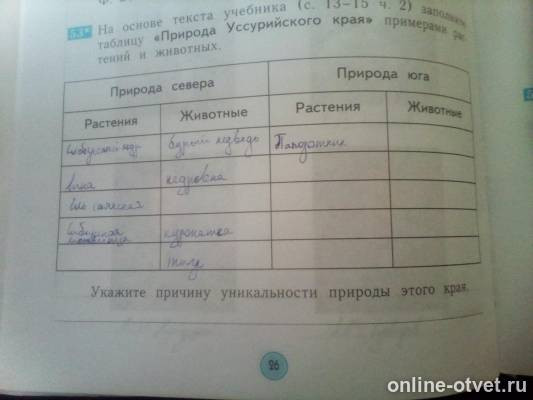 53* На основе текста учебника (с. 13–15 ч. 2) заполни
таблицу «Природа Уссурийского края» примерами рас-
тений и животных.
Природа севера Природа юга
Растения Животные Растения Животные
бурый медведь Папоротник
кедровка
куропатка
Укажите причину уникальности природы этого края.
26
online-otvet.ru